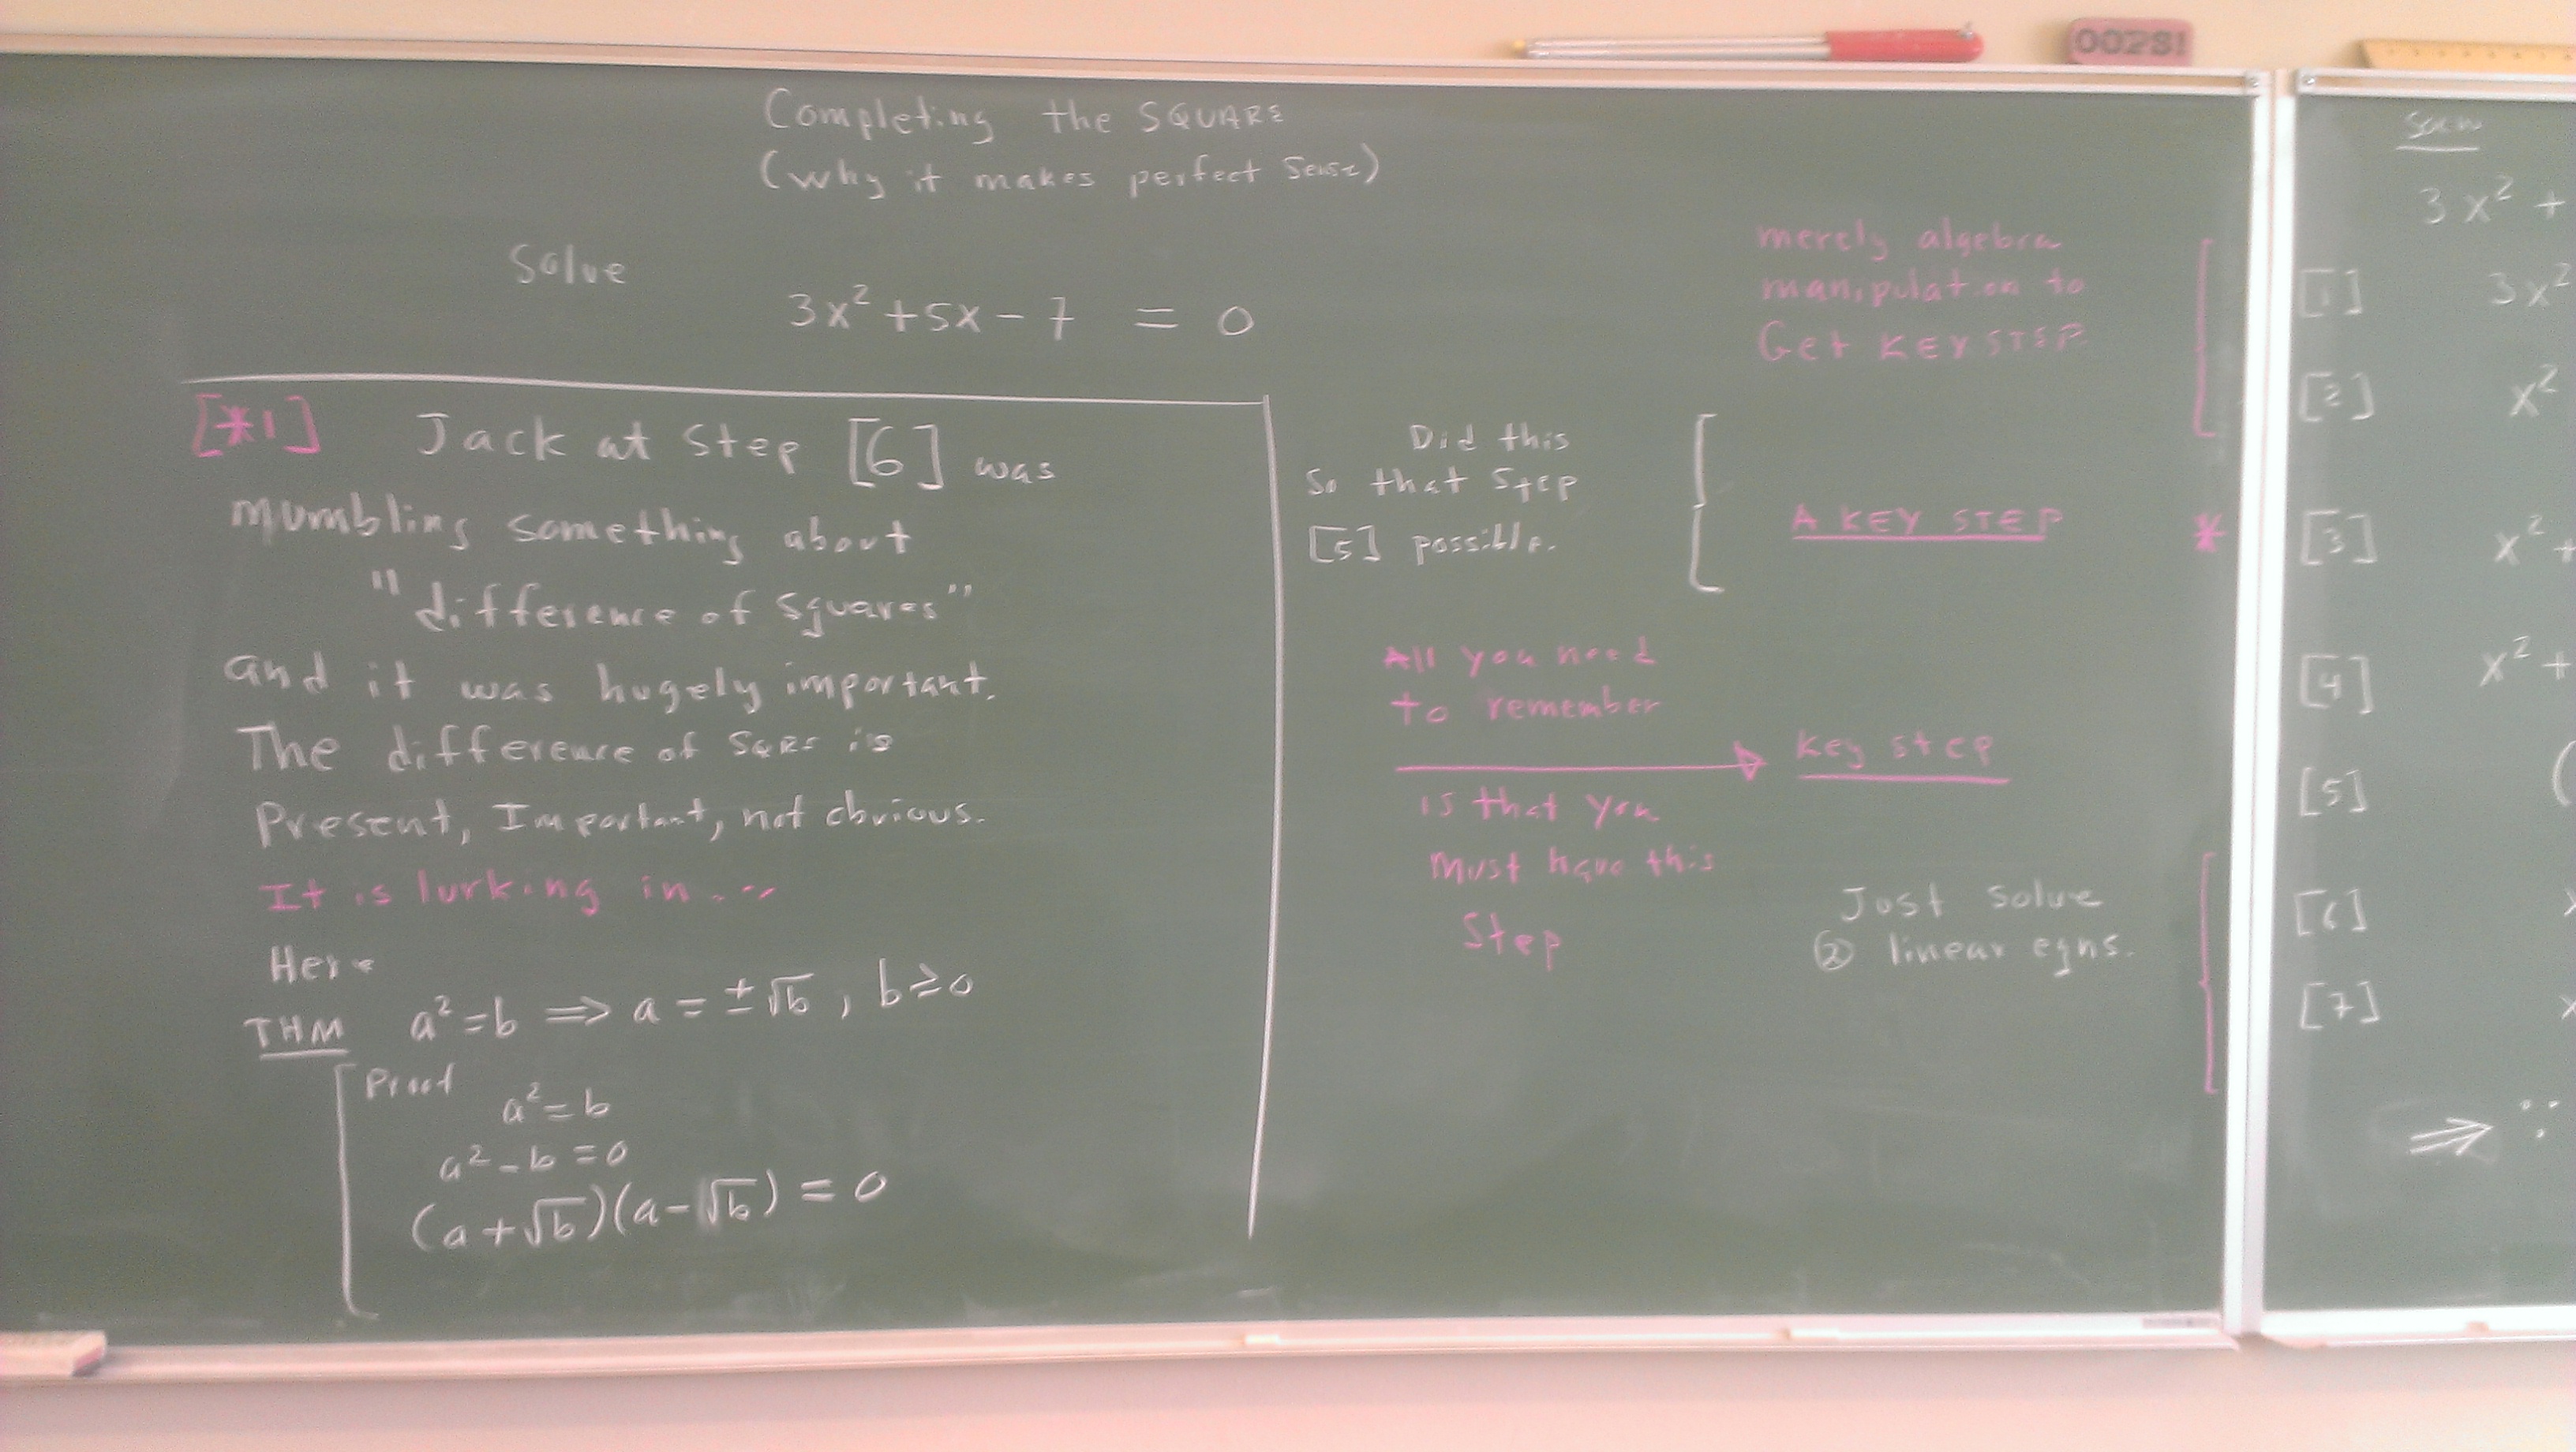 OOPS!
Completing the SQUARE
(why it makes perfect sense)
Solve
3x² + 5x - 7 = 0
[*1] Jack at step [6] was
mumbling something about
"difference of squares"
and it was hugely important.
The difference of SQRS is
Present, Important, not obvious.
It is lurking in...
Here
THM a² = b ⟹ a = ±√b, b ≥ 0
Proof
a² = b
a² - b = 0
(a + √b)(a - √b) = 0
merely algebra
manipulation to
Get KEY STEP
Did this
So that Step
[5] possible.
A KEY STEP *
All you need
to remember
Key step
is that you
must have this
Step
Just solve
② linear eqns.
Soln
3x² +
[1] 3x²
[2] x²
[3] x² +
[4] x² +
[5] (
[6] x
[7] x
⟹ ∵